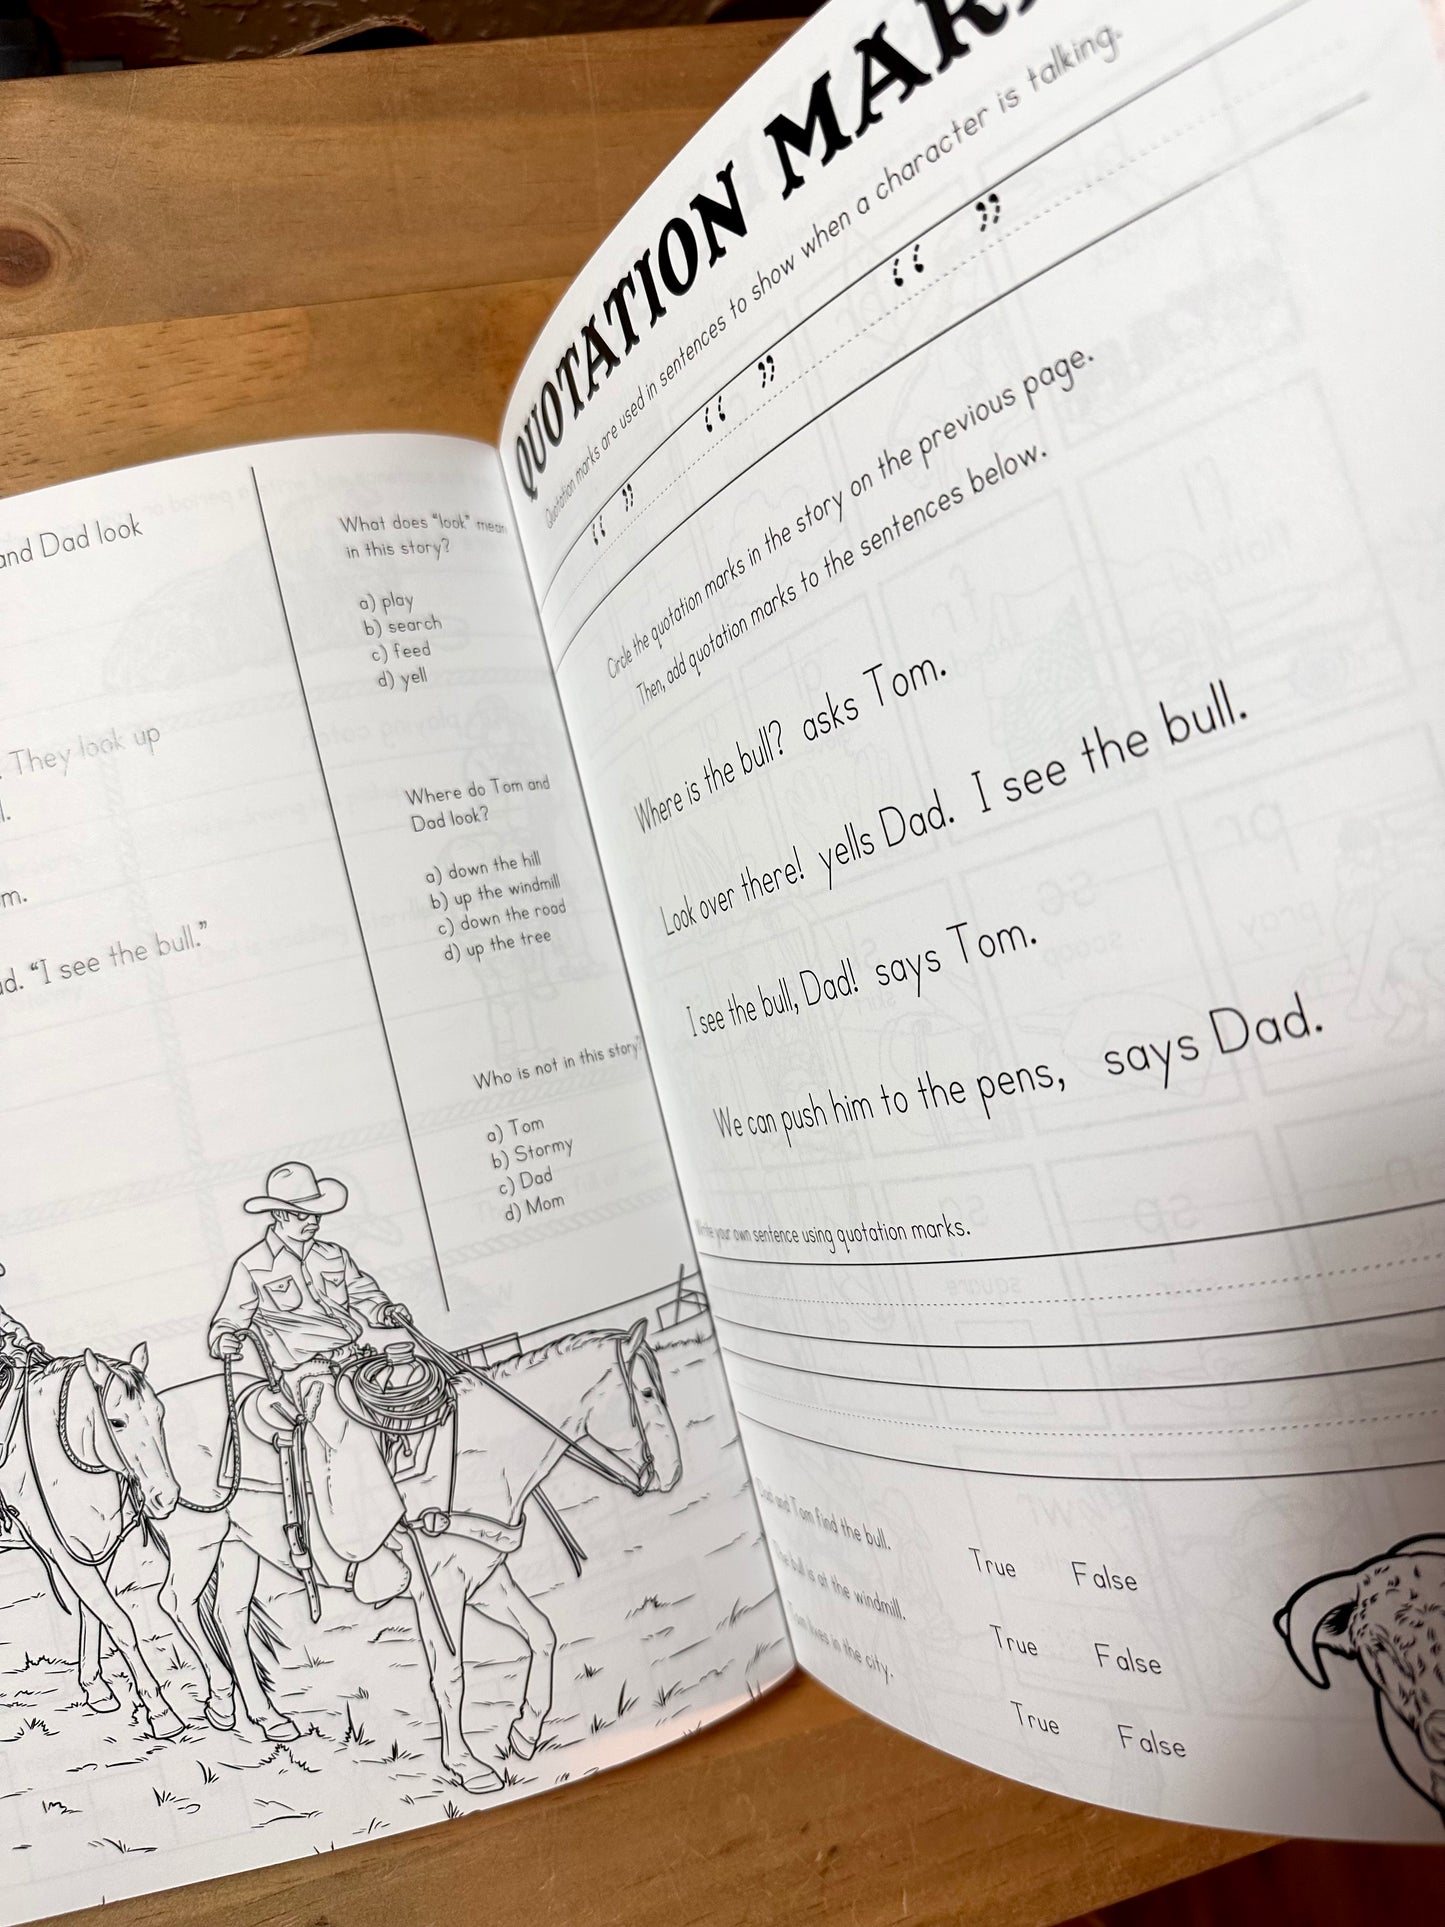 and Dad look
They look up
l.
m.
ad. “I see the bull.”
What does “look” mean
in this story?
a) play
b) search
c) feed
d) yell
Where do Tom and
Dad look?
a) down the hill
b) up the windmill
c) down the road
d) up the tree
Who is not in this story?
a) Tom
b) Stormy
c) Dad
d) Mom
QUOTATION
Quotation marks are used in sentences to show when a character is talking.
“ ” “ ” “ ”
Circle the quotation marks in the story on the previous page.
Then, add quotation marks to the sentences below.
Where is the bull? asks Tom.
Look over there! yells Dad. I see the bull.
I see the bull, Dad! says Tom.
We can push him to the pens, says Dad.
Write your own sentence using quotation marks.
and Tom find the bull. True False
The bull is at the windmill. True False
Tom lives in the city. True False